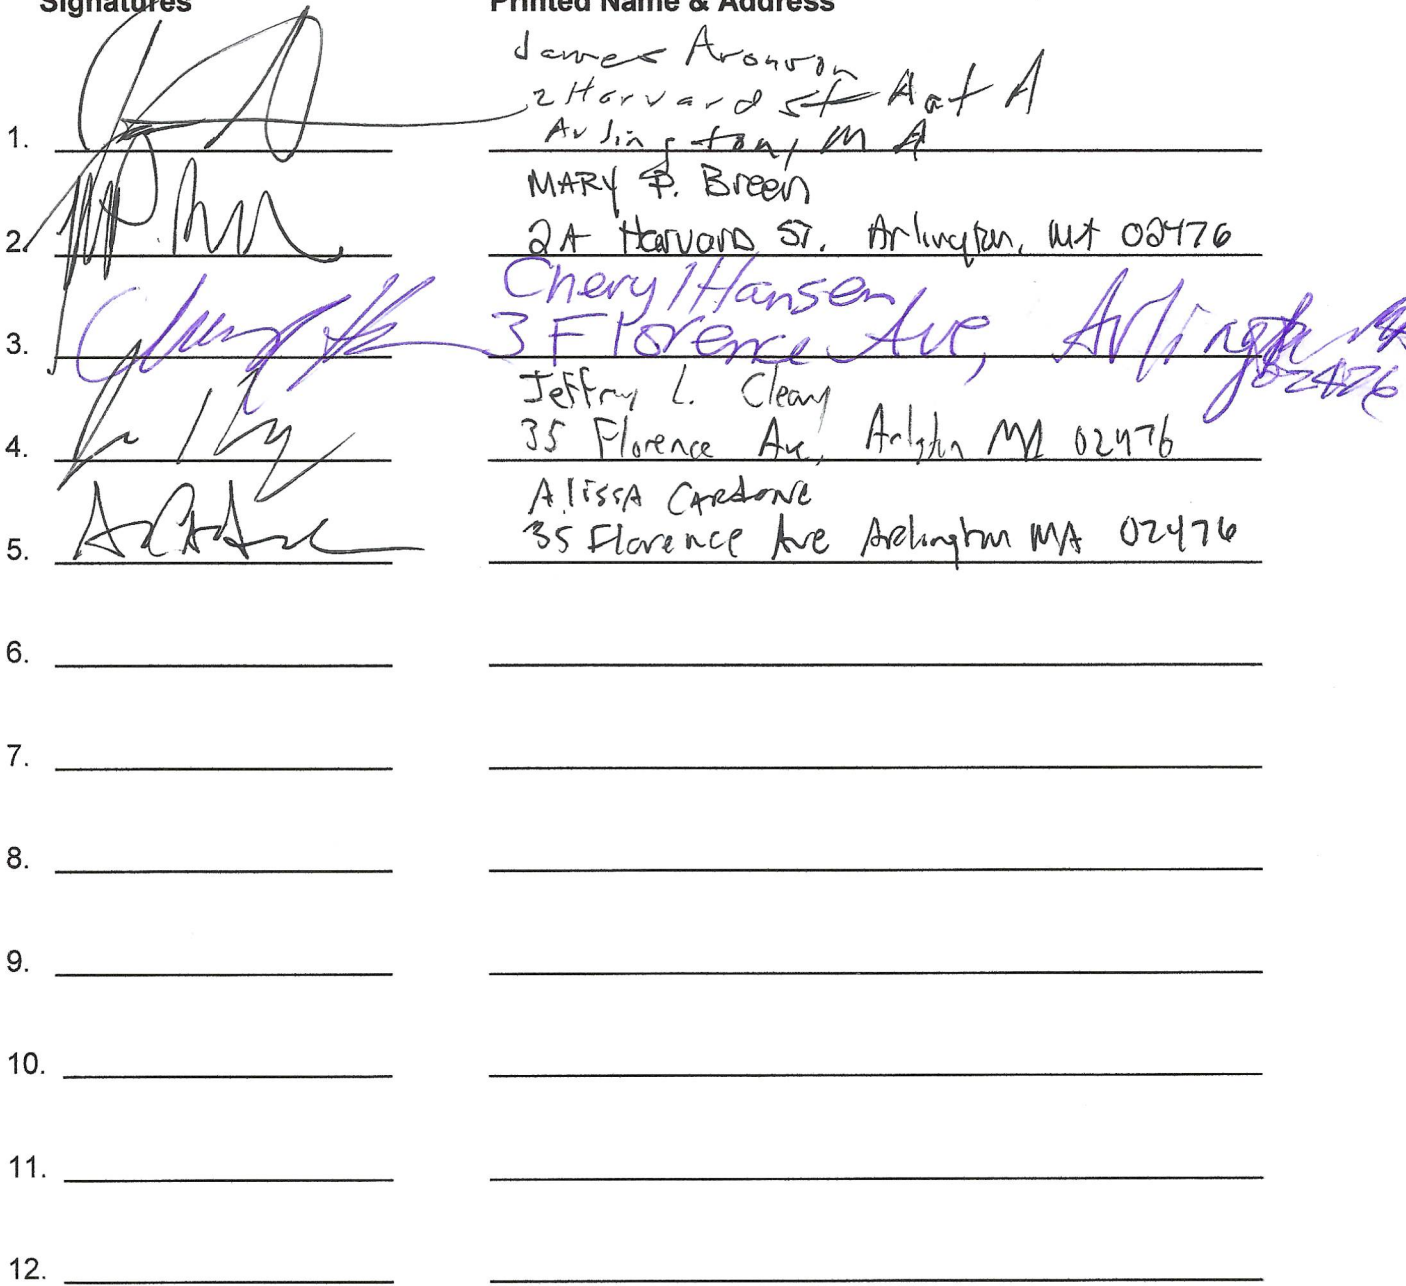 Signatures Printed Name & Address
James Aronson
2 Harvard St Apt A
1. Arlington, MA
MARY P. Breen
2. 2A Harvard St. Arlington, MA 02476
Cheryl Hansen
3. 3 Florence Ave, Arlington MA
02476
Jeffry L. Cleary
4. 35 Florence Ave, Arlgtn MA 02476
Alissa Cardone
5. 35 Florence Ave Arlington MA 02476
6.
7.
8.
9.
10.
11.
12.